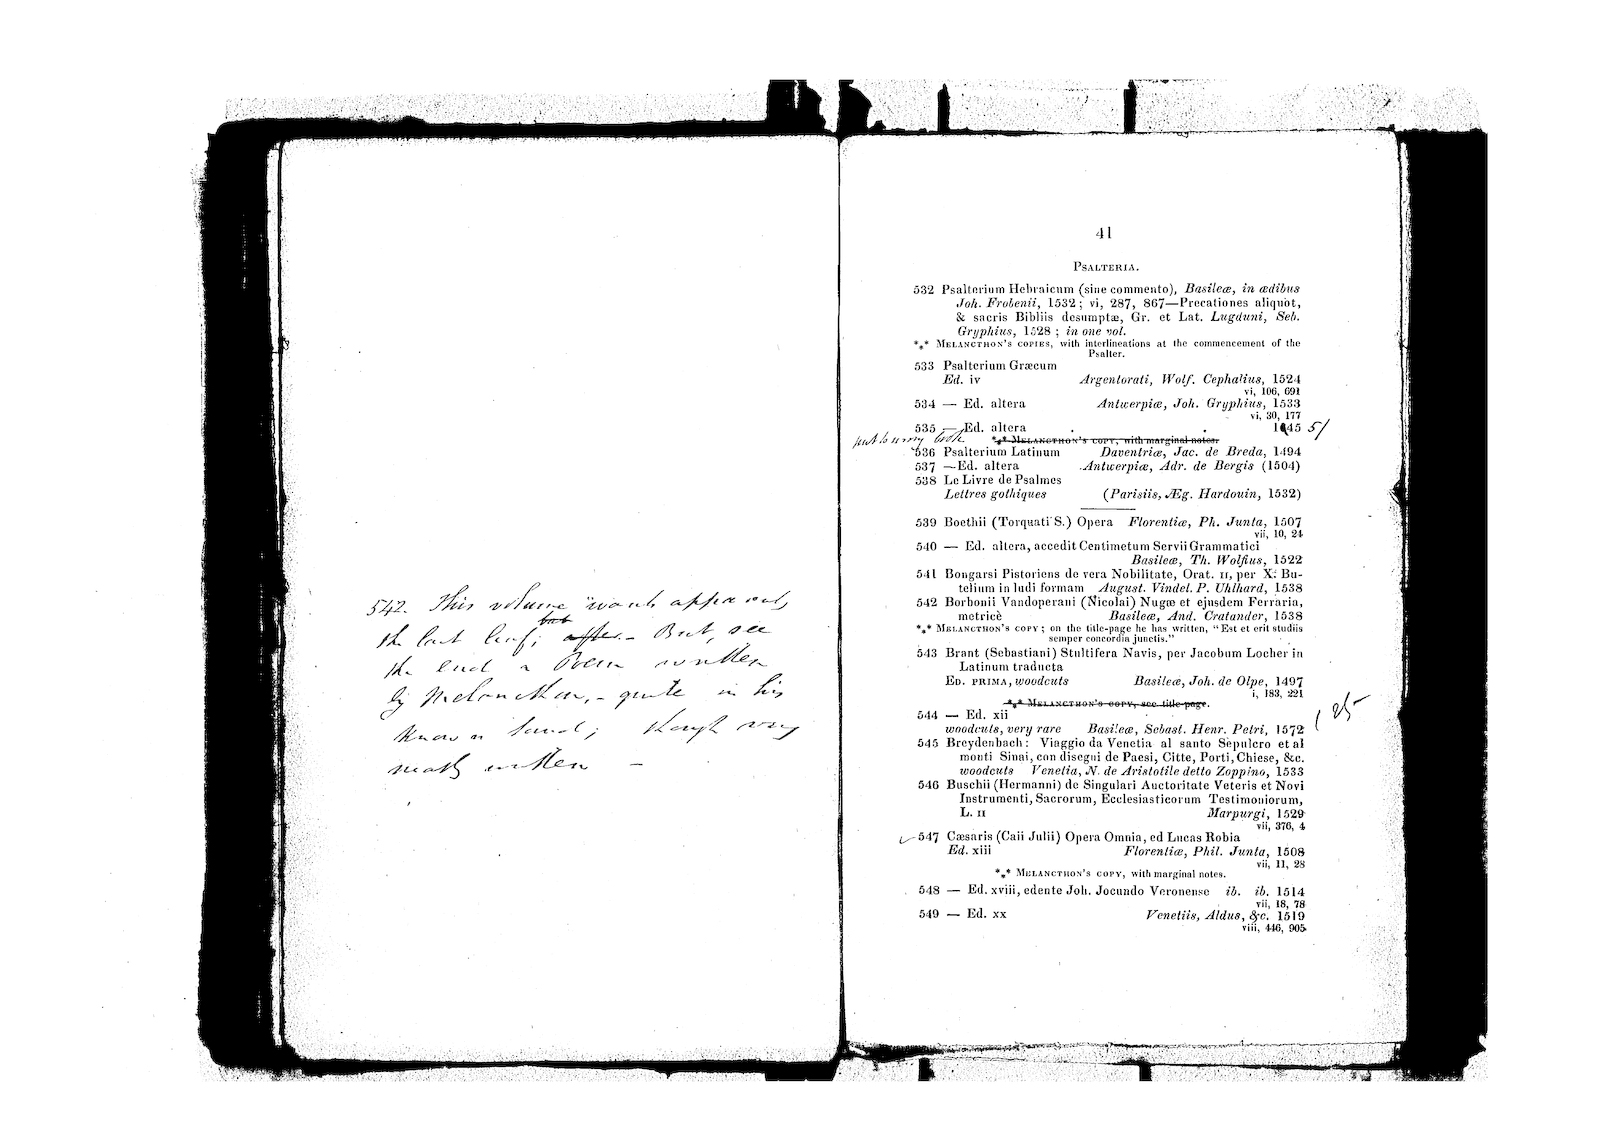 542. This volume wants apparently
the last leaf; but after. — But, see
the end a Poem written
by Melancthon, — quite in his
known hand; though very
neatly written —
41
PSALTERIA.
532 Psalterium Hebraicum (sine commento), Basileæ, in ædibus
Joh. Frobenii, 1532; vi, 287, 867—Precationes aliquot,
& sacris Bibliis desumptæ, Gr. et Lat. Lugduni, Seb.
Gryphius, 1528; in one vol.
*⁎* MELANCTHON'S COPIES, with interlineations at the commencement of the
Psalter.
533 Psalterium Græcum
Ed. iv Argentorati, Wolf. Cephalius, 1524
vi, 106, 691
534 — Ed. altera Antwerpiæ, Joh. Gryphius, 1533
vi, 30, 177
535 — Ed. altera . . 1545 5/
*⁎* MELANCTHON'S COPY, with marginal notes.
536 Psalterium Latinum Daventriæ, Jac. de Breda, 1494
537 — Ed. altera Antwerpiæ, Adr. de Bergis (1504)
538 Le Livre de Psalmes
Lettres gothiques (Parisiis, Æg. Hardouin, 1532)
539 Boethii (Torquati S.) Opera Florentiæ, Ph. Junta, 1507
vii, 10, 24
540 — Ed. altera, accedit Centimetum Servii Grammatici
Basileæ, Th. Wolfius, 1522
541 Bongarsi Pistoriens de vera Nobilitate, Orat. II, per X. Bu-
telium in ludi formam August. Vindel. P. Uhlhard, 1538
542 Borbonii Vandoperani (Nicolai) Nugæ et ejusdem Ferraria,
metricè Basileæ, And. Cratander, 1538
*⁎* MELANCTHON'S COPY; on the title-page he has written, "Est et erit studiis
semper concordia junctis."
543 Brant (Sebastiani) Stultifera Navis, per Jacobum Locher in
Latinum traducta
ED. PRIMA, woodcuts Basileæ, Joh. de Olpe, 1497
i, 183, 221
*⁎* MELANCTHON'S COPY, see title-page.
544 — Ed. xii
woodcuts, very rare Basileæ, Sebast. Henr. Petri, 1572
545 Breydenbach: Viaggio da Venetia al santo Sepulcro et al
monti Sinai, con disegni de Paesi, Citte, Porti, Chiese, &c.
woodcuts Venetia, N. de Aristotile detto Zoppino, 1533
546 Buschii (Hermanni) de Singulari Auctoritate Veteris et Novi
Instrumenti, Sacrorum, Ecclesiasticorum Testimoniorum,
L. II Marpurgi, 1529
vii, 376, 4
547 Cæsaris (Caii Julii) Opera Omnia, ed Lucas Robia
Ed. xiii Florentiæ, Phil. Junta, 1508
vii, 11, 28
*⁎* MELANCTHON'S COPY, with marginal notes.
548 — Ed. xviii, edente Joh. Jocundo Veronense ib. ib. 1514
vii, 18, 78
549 — Ed. xx Venetiis, Aldus, &c. 1519
viii, 446, 905